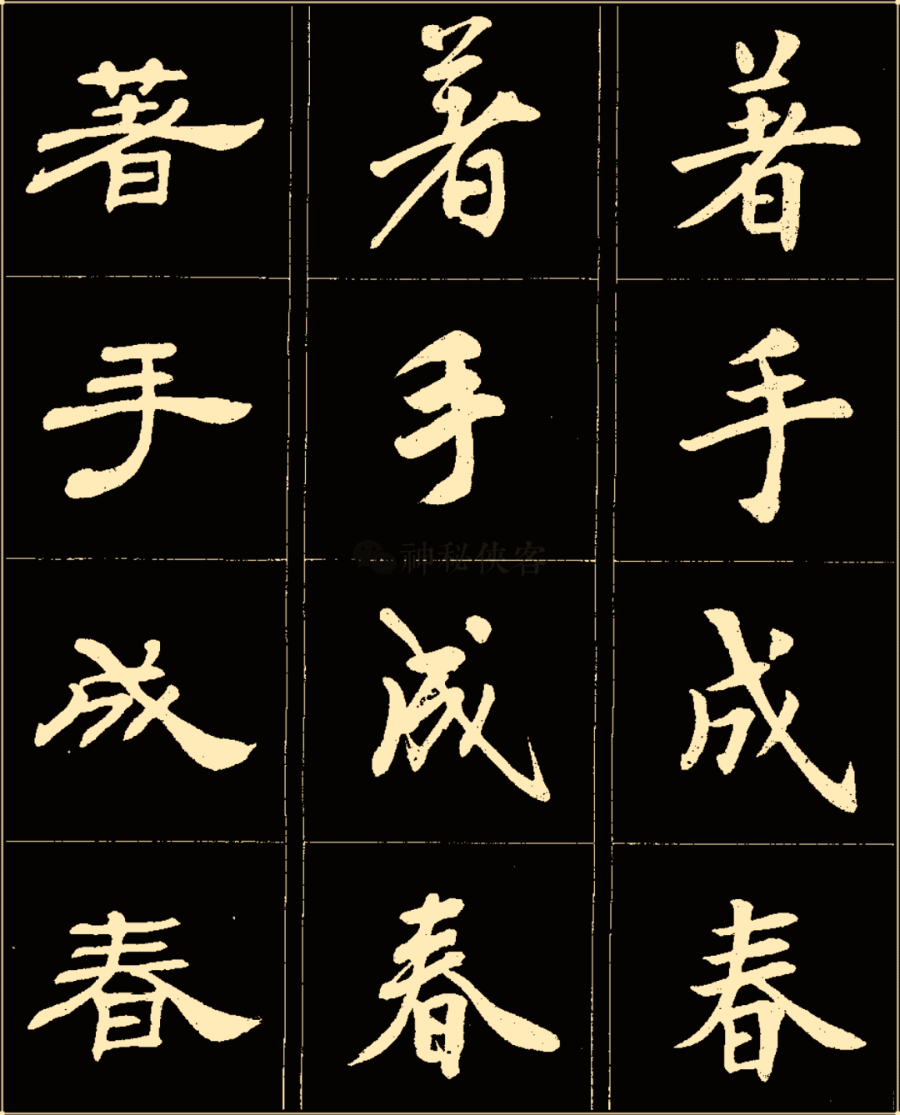 著手成春
著手成春
著手成春
神秘侠客